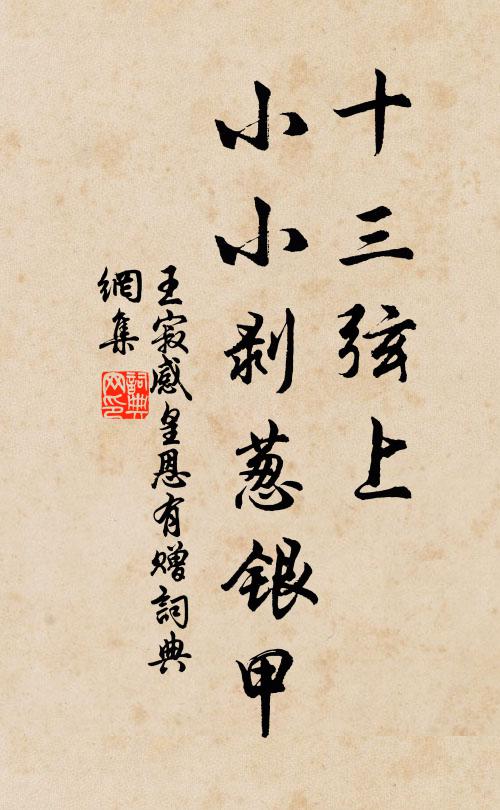 十三弦上
小小剥葱银甲
王寂感皇恩有赠詞典
網集
詞典網印